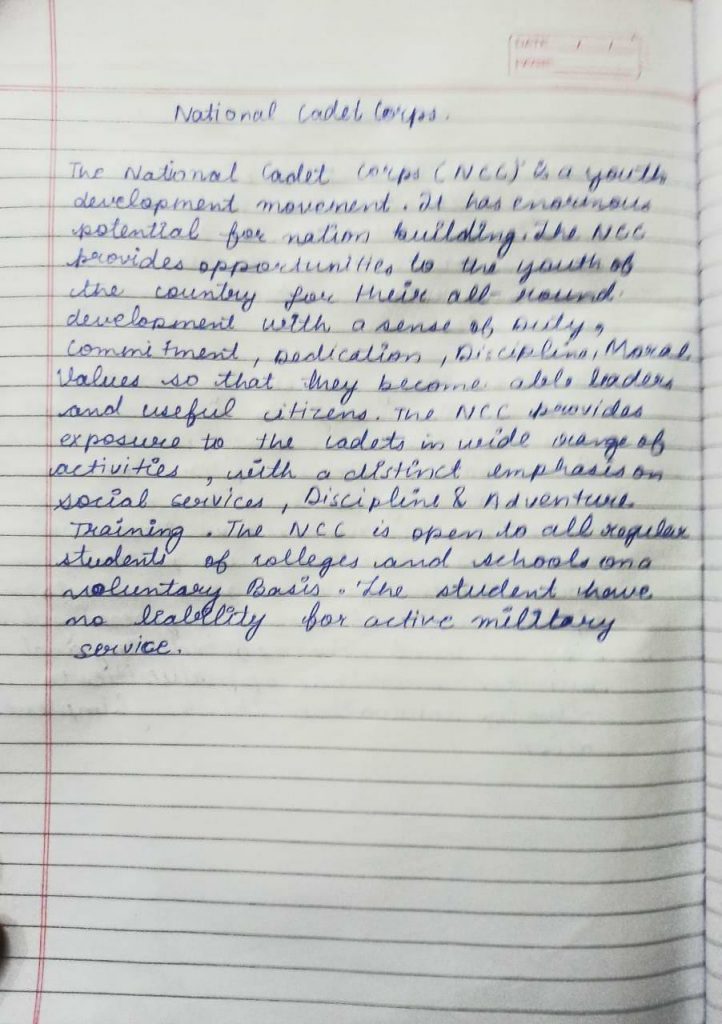 DATE / /
NAME
National Cadet Corps.
The National Cadet Corps (NCC) is a youth
development movement. It has enormous
potential for nation building. The NCC
provides opportunities to the youth of
the country for their all-round
development with a sense of Duty,
Commitment, Dedication, Discipline, Moral
Values so that they become able leaders
and useful citizens. The NCC provides
exposure to the cadets in wide range of
activities, with a distinct emphasis on
social services, Discipline & Adventure
Training. The NCC is open to all regular
students of colleges and schools on a
voluntary Basis. The student have
no liability for active military
service.